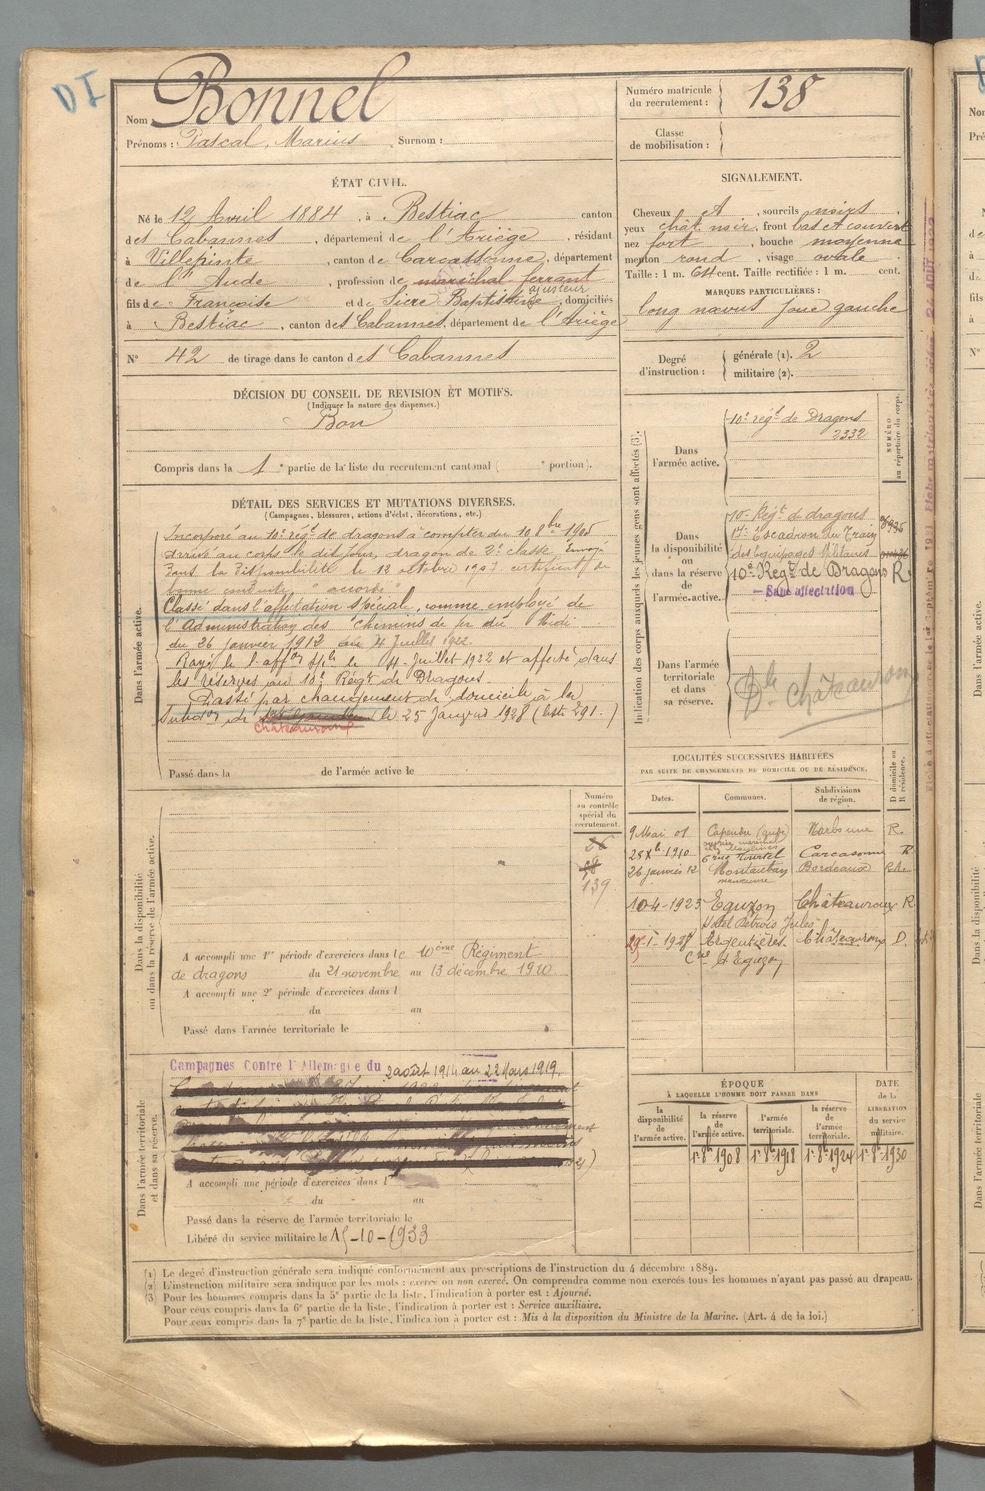 DI
Nom : Bonnel
Prénoms : Pascal, Marius Surnom :
Numéro matricule du recrutement : 138
Classe de mobilisation :
ÉTAT CIVIL.
Né le 12 Avril 1884, à Bestiac canton
des Cabannes, département de l'Ariège, résidant
à Villepinte, canton de Carcassonne, département
de l'Aude, profession de maréchal ferrant
ajusteur
fils de Françoise et de Sicre Baptistine, domiciliés
à Bestiac, canton des Cabannes, département de l'Ariège
N° 42 de tirage dans le canton des Cabannes
SIGNALEMENT.
Cheveux , sourcils noirs
yeux chat. noir, front bas et couvert
nez fort, bouche moyenne
menton rond, visage ovale
Taille : 1 m. 64 cent. Taille rectifiée : 1 m. cent.
MARQUES PARTICULIÈRES :
long nœvus joue gauche
Degré d'instruction : générale (1). 2
militaire (2).
DÉCISION DU CONSEIL DE REVISION ET MOTIFS.
(Indiquer la nature des dispenses.)
Bon
Compris dans la 1e partie de la liste du recrutement cantonal ( e portion).
DÉTAIL DES SERVICES ET MUTATIONS DIVERSES.
(Campagnes, blessures, actions d'éclat, décorations, etc.)
Dans l'armée active.
Incorporé au 10e régt de dragons à compter du 10 8bre 1905
arrivé au corps le dit jour, dragon de 2e classe Envoyé
dans la Disponibilité le 12 octobre 1907 certificat de
bonne conduite "accordé"
Classé dans l'affectation spéciale, comme employé de
l'Administration des Chemins de fer du Midi
du 26 janvier 1912 au 4 Juillet 1922.
Rayé de l'affon Sple le 4 Juillet 1922 et affecté dans
les réserves au 10e Régt de Dragons
Passé par changement de domicile à la
Subdon de Châteauroux le 25 Janvier 1928 (liste 291.)
Passé dans la de l'armée active le
Indication des corps auxquels les jeunes gens sont affectés (3).
NUMÉRO au répertoire du corps.
Dans l'armée active.
10e régt de Dragons
2332
Dans la disponibilité ou dans la réserve de l'armée active.
10e Régt de dragons
17e Escadron du Train
des Equipages Militaires
10e Régt de Dragons R
Sans affectation
Dans l'armée territoriale et dans sa réserve.
Châteauroux
LOCALITÉS SUCCESSIVES HABITÉES
PAR SUITE DE CHANGEMENTS DE DOMICILE OU DE RÉSIDENCE.
Dates. Communes. Subdivisions de région. D domicile ou R résidence.
9 Mai 08 Capendu (Aude) Narbonne R.
28 Xbre 1910 6 rue Tourtel Carcassonne R
26 janvier 12 Montauban Bordeaux
10-4-1923 Eguzon Châteauroux R
Hôtel Pétrois Jules
29-1-1928 Argentières Châteauroux D.
Cne d'Eguzon
Numéro au contrôle spécial du recrutement.
139
Dans la disponibilité ou dans la réserve de l'armée active.
A accompli une 1re période d'exercices dans le 10ème Régiment
de dragons du 21 novembre au 13 décembre 1910
A accompli une 2e période d'exercices dans l
du au
Passé dans l'armée territoriale le
Dans l'armée territoriale et dans sa réserve.
Campagnes Contre l'Allemagne du 2 août 1914 au 22 Mars 1919.
A accompli une période d'exercices dans l
du au
Passé dans la réserve de l'armée territoriale le
Libéré du service militaire le 15-10-1933
ÉPOQUE
À LAQUELLE L'HOMME DOIT PASSER DANS
la disponibilité de l'armée active. la réserve de l'armée active. l'armée territoriale. la réserve de l'armée territoriale. DATE de la LIBÉRATION du service militaire.
1r 8bre 1908 1r 8bre 1918 1r 8bre 1924 1r 8bre 1930
(1) Le degré d'instruction générale sera indiqué conformément aux prescriptions de l'instruction du 4 décembre 1889.
(2) L'instruction militaire sera indiquée par les mots : exercé ou non exercé. On comprendra comme non exercés tous les hommes n'ayant pas passé au drapeau.
(3) Pour les hommes compris dans la 5e partie de la liste, l'indication à porter est : Ajourné.
Pour ceux compris dans la 6e partie de la liste, l'indication à porter est : Service auxiliaire.
Pour ceux compris dans la 7e partie de la liste, l'indication à porter est : Mis à la disposition du Ministre de la Marine. (Art. 4 de la loi.)